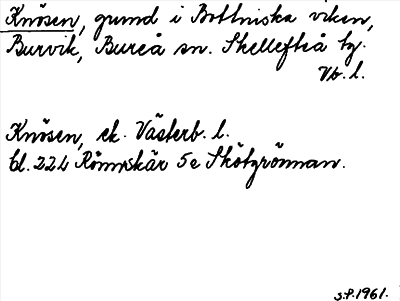 Knösen, grund i Bottniska viken,
Burvik, Bureå sn. Skellefteå tg.
Vb. l.
Knösen, ek. Västerb. l.
bl. 224 Rönnskär 5e Skötgrönnan.
S.P. 1961.